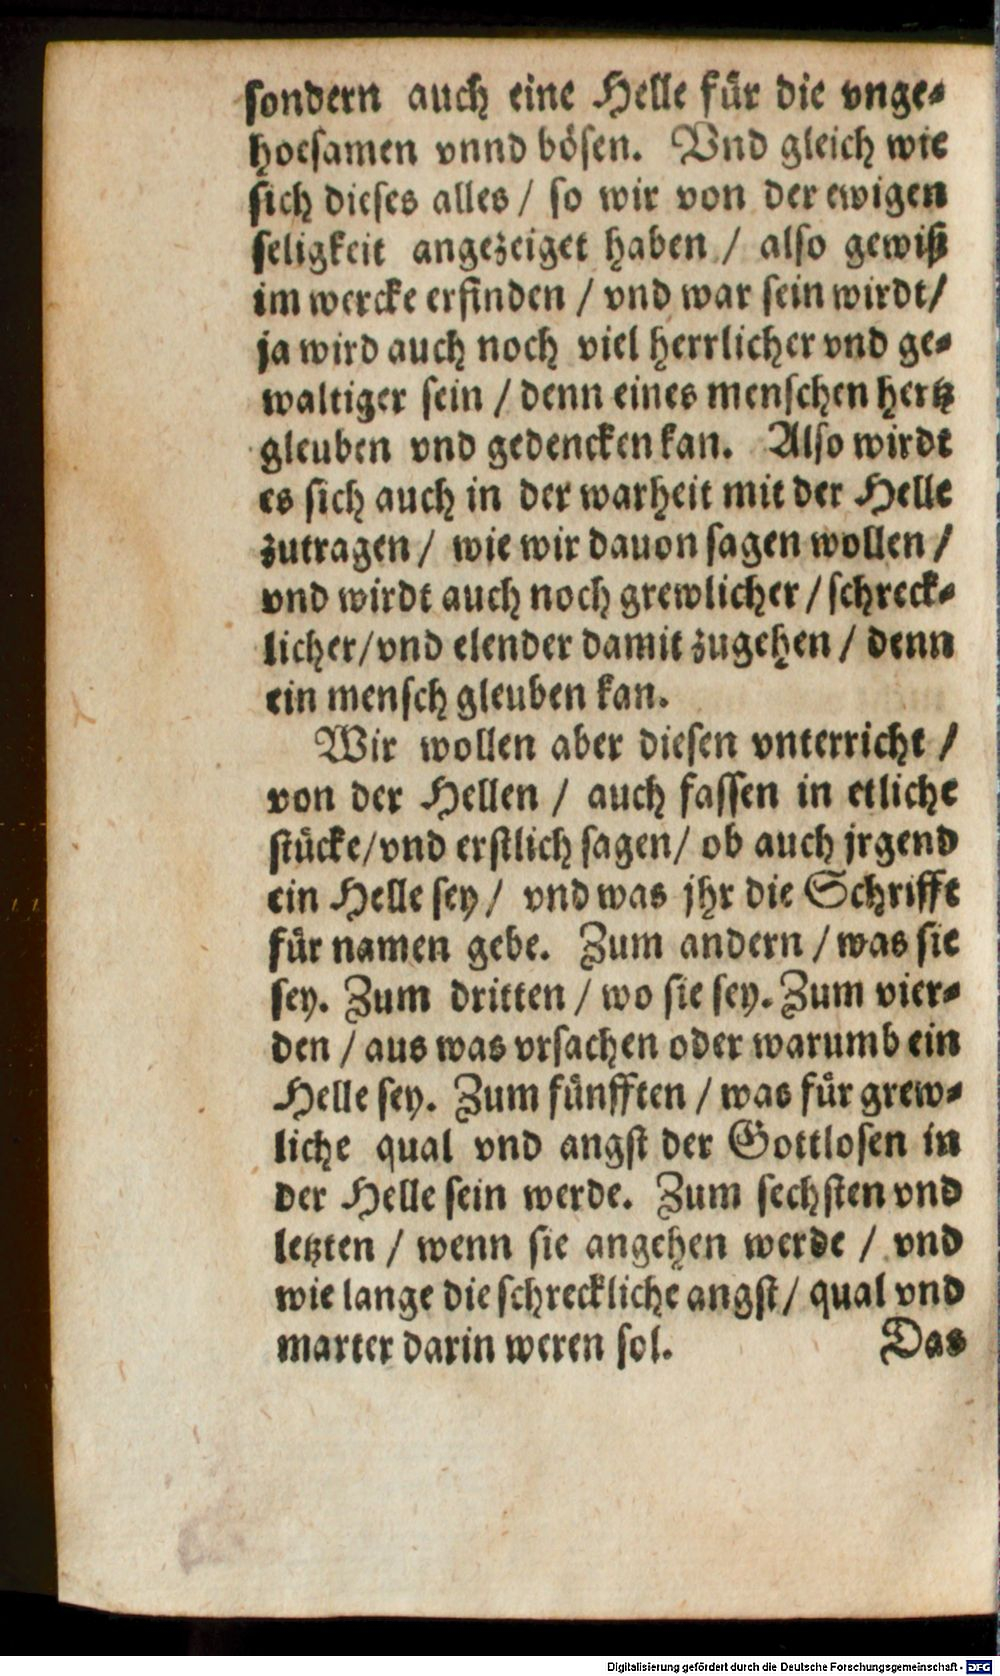 sondern auch eine Helle für die vnge-
hoesamen vnnd bösen. Vnd gleich wie
sich dieses alles / so wir von der ewigen
seligkeit angezeiget haben / also gewiß
im wercke erfinden / vnd war sein wirdt/
ja wird auch noch viel herrlicher vnd ge-
waltiger sein / denn eines menschen hertz
gleuben vnd gedencken kan. Also wirdt
es sich auch in der warheit mit der Helle
zutragen / wie wir dauon sagen wollen /
vnd wirdt auch noch grewlicher / schreck-
licher/vnd elender damit zugehen / denn
ein mensch gleuben kan.
Wir wollen aber diesen vnterricht /
von der Hellen / auch fassen in etliche
stücke/vnd erstlich sagen/ ob auch jrgend
ein Helle sey / vnd was jhr die Schrifft
für namen gebe. Zum andern / was sie
sey. Zum dritten / wo sie sey. Zum vier-
den / aus was vrsachen oder warumb ein
Helle sey. Zum fünfften / was für grew-
liche qual vnd angst der Gottlosen in
der Helle sein werde. Zum sechsten vnd
letzten / wenn sie angehen werde / vnd
wie lange die schreckliche angst/ qual vnd
marter darin weren sol.
Das
Digitalisierung gefördert durch die Deutsche Forschungsgemeinschaft - DFG